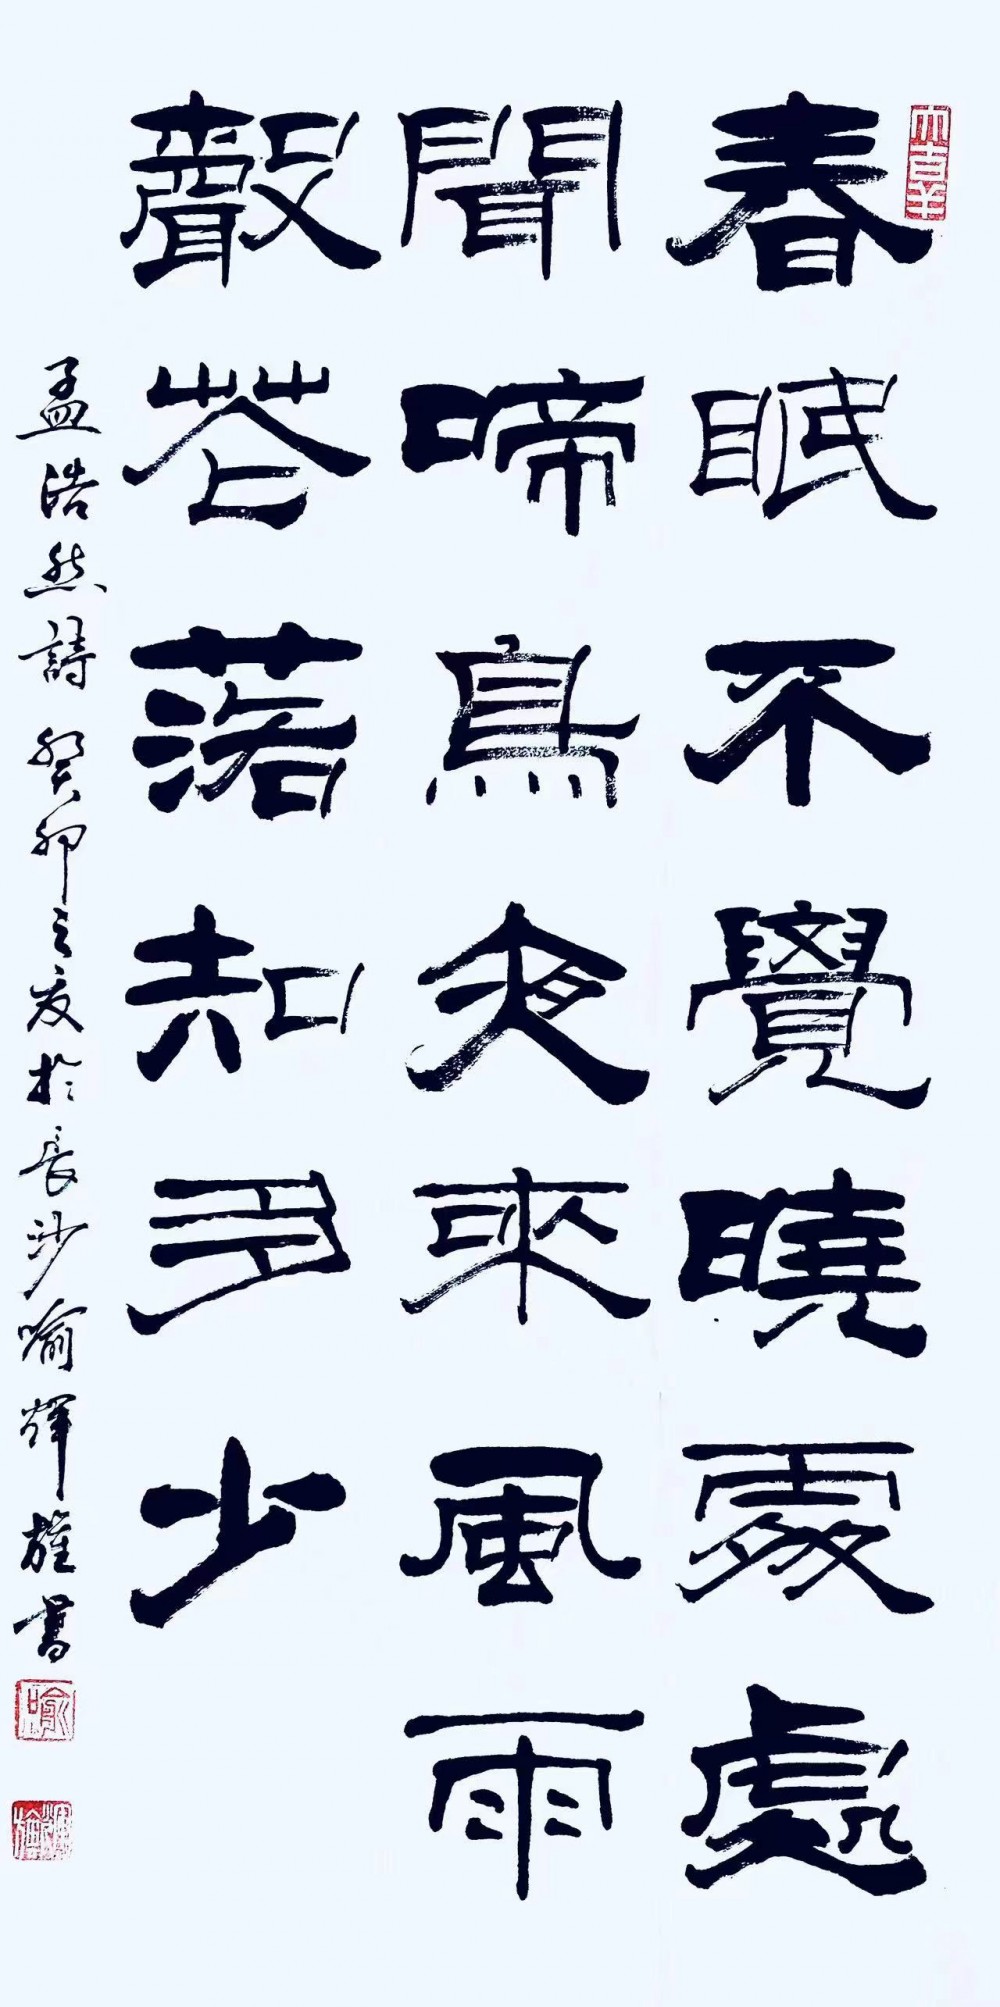 大吉羊
春眠不覺曉處處
聞啼鳥夜來風雨
聲花落知多少
孟浩然詩 癸卯之夏於長沙喻輝書
喻